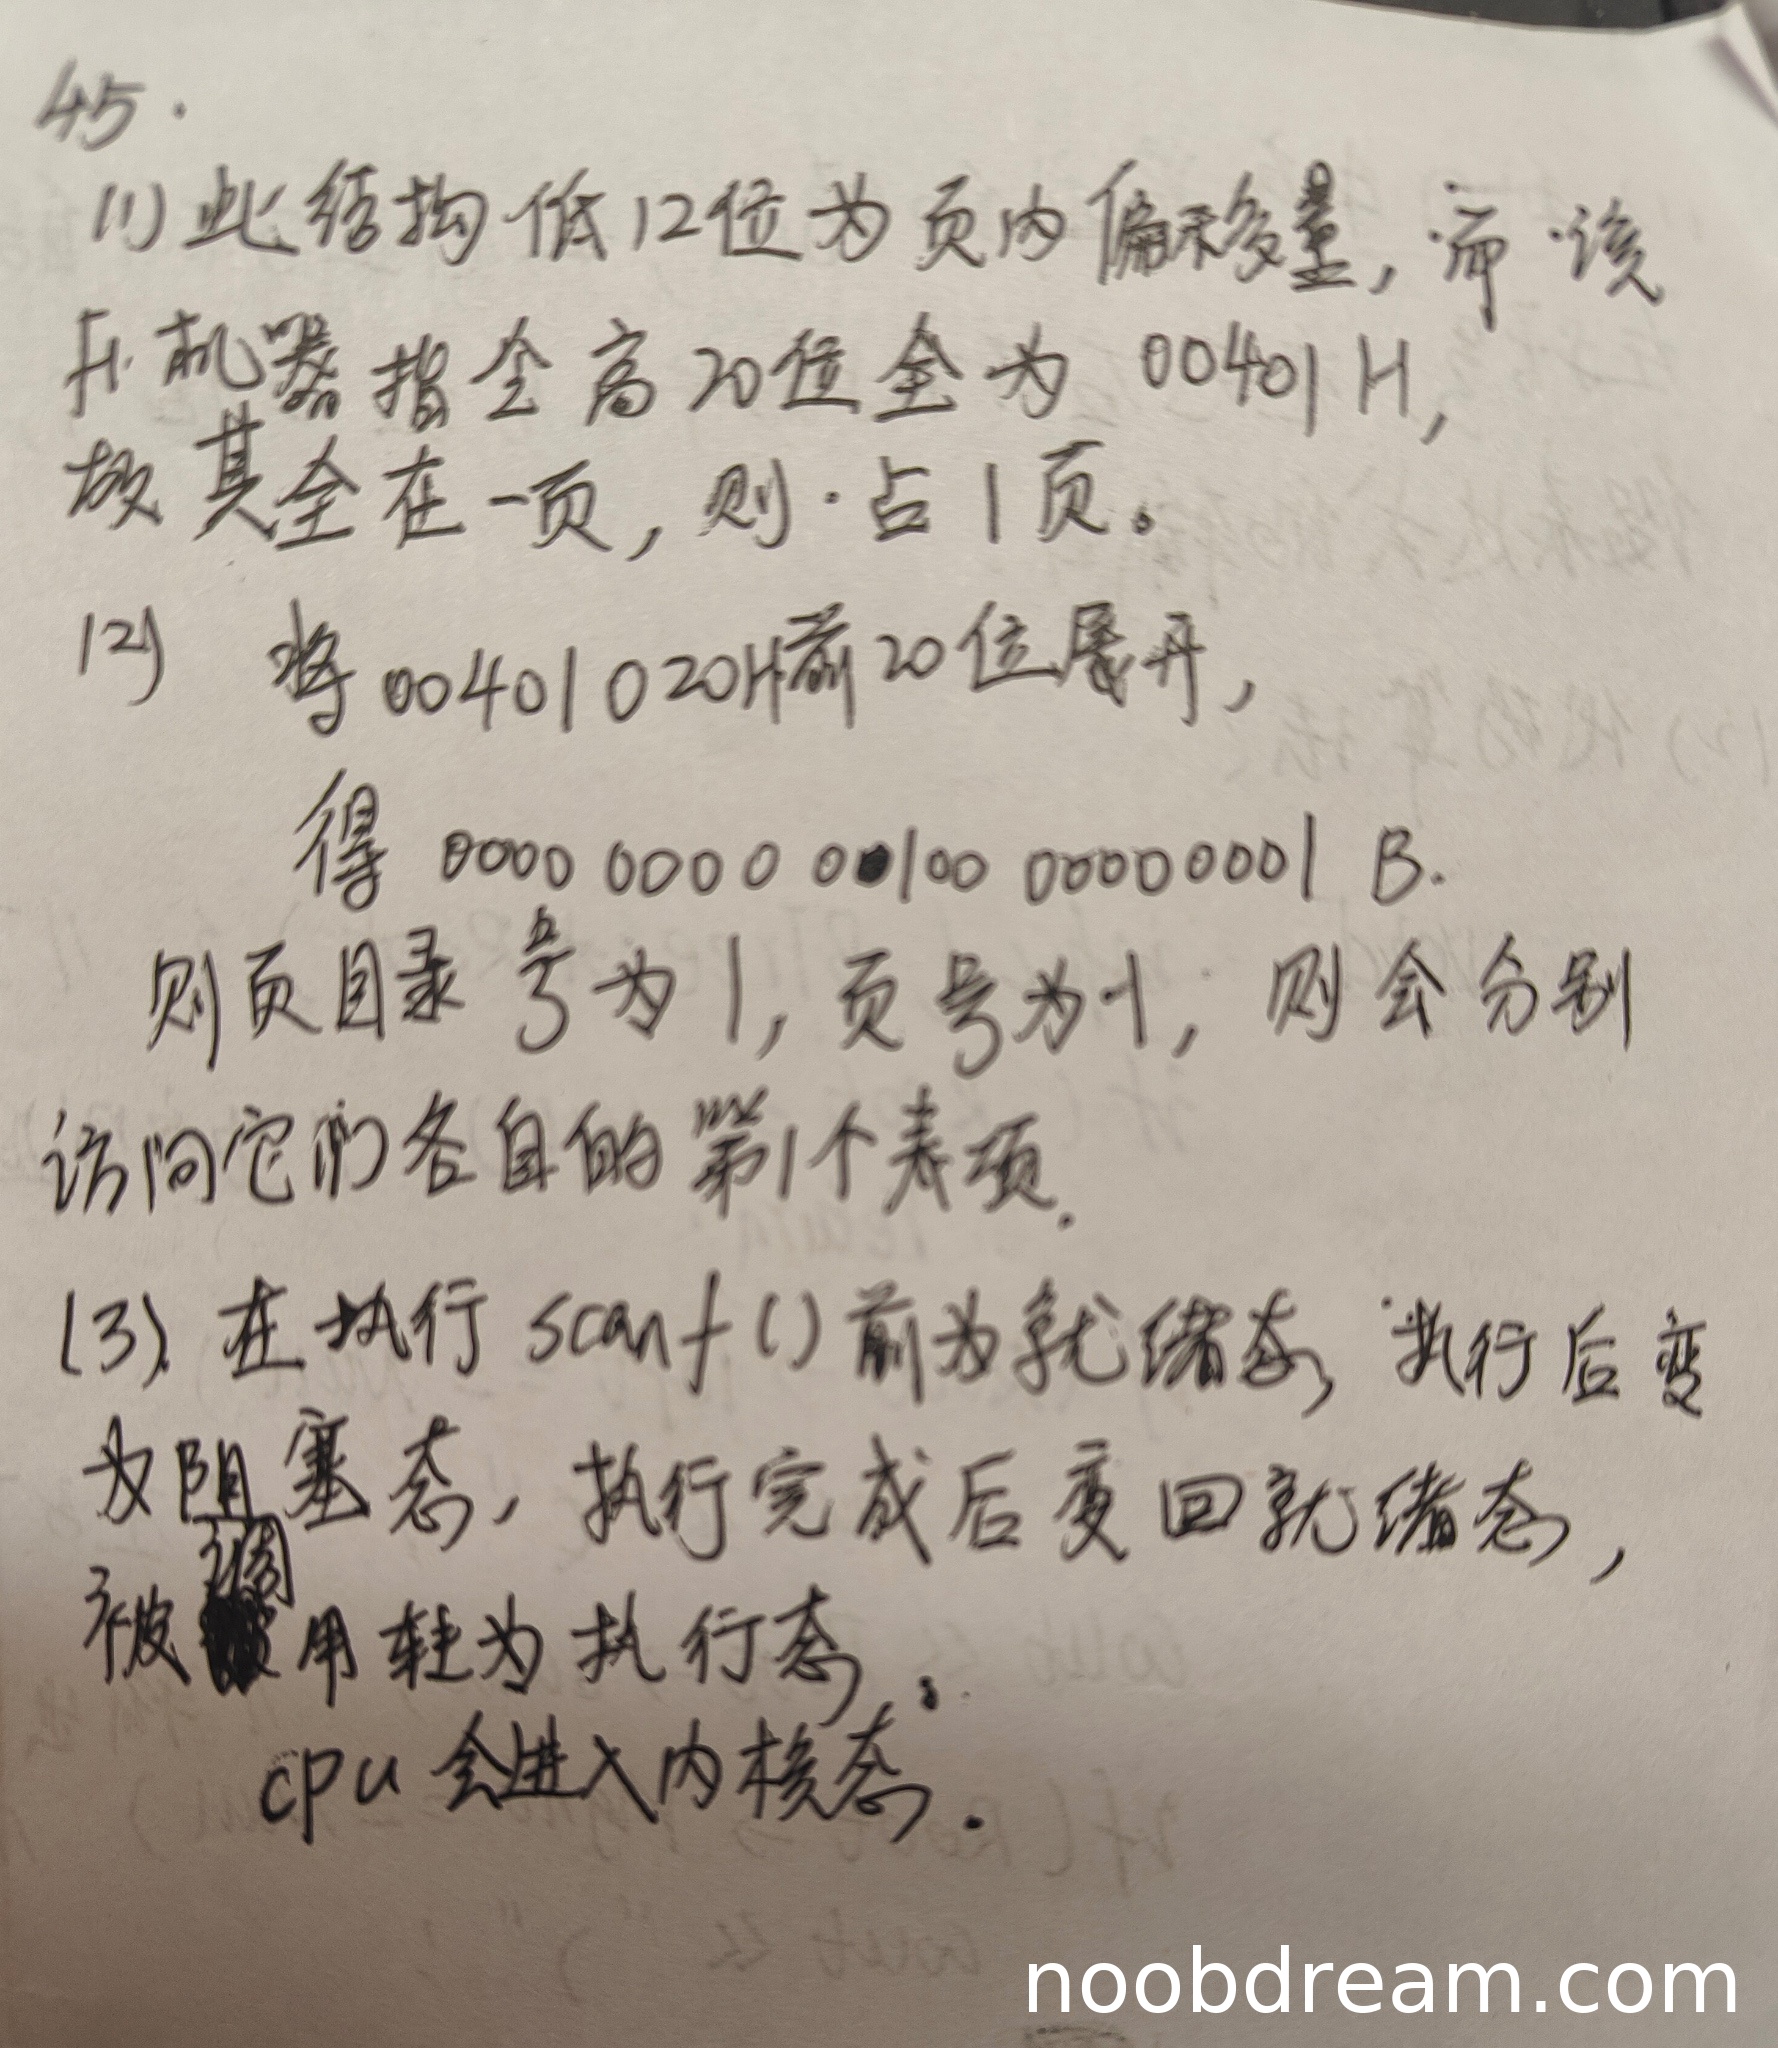 45.
(1) 此结构低12位为页内偏移量, 而该
f1 机器指令高20位全为 00401H,
故其全在一页, 则占1页。
(2) 将00401020H前20位展开,
得 0000 0000 0 0100 00000001 B.
则页目录号为1, 页号为1, 则会分别
访问它们各自的第1个表项.
(3). 在执行 scanf() 前为就绪态, 执行后变
为阻塞态, 执行完成后变回就绪态,
被调用转为执行态。
cpu 会进入内核态.
noobdream.com